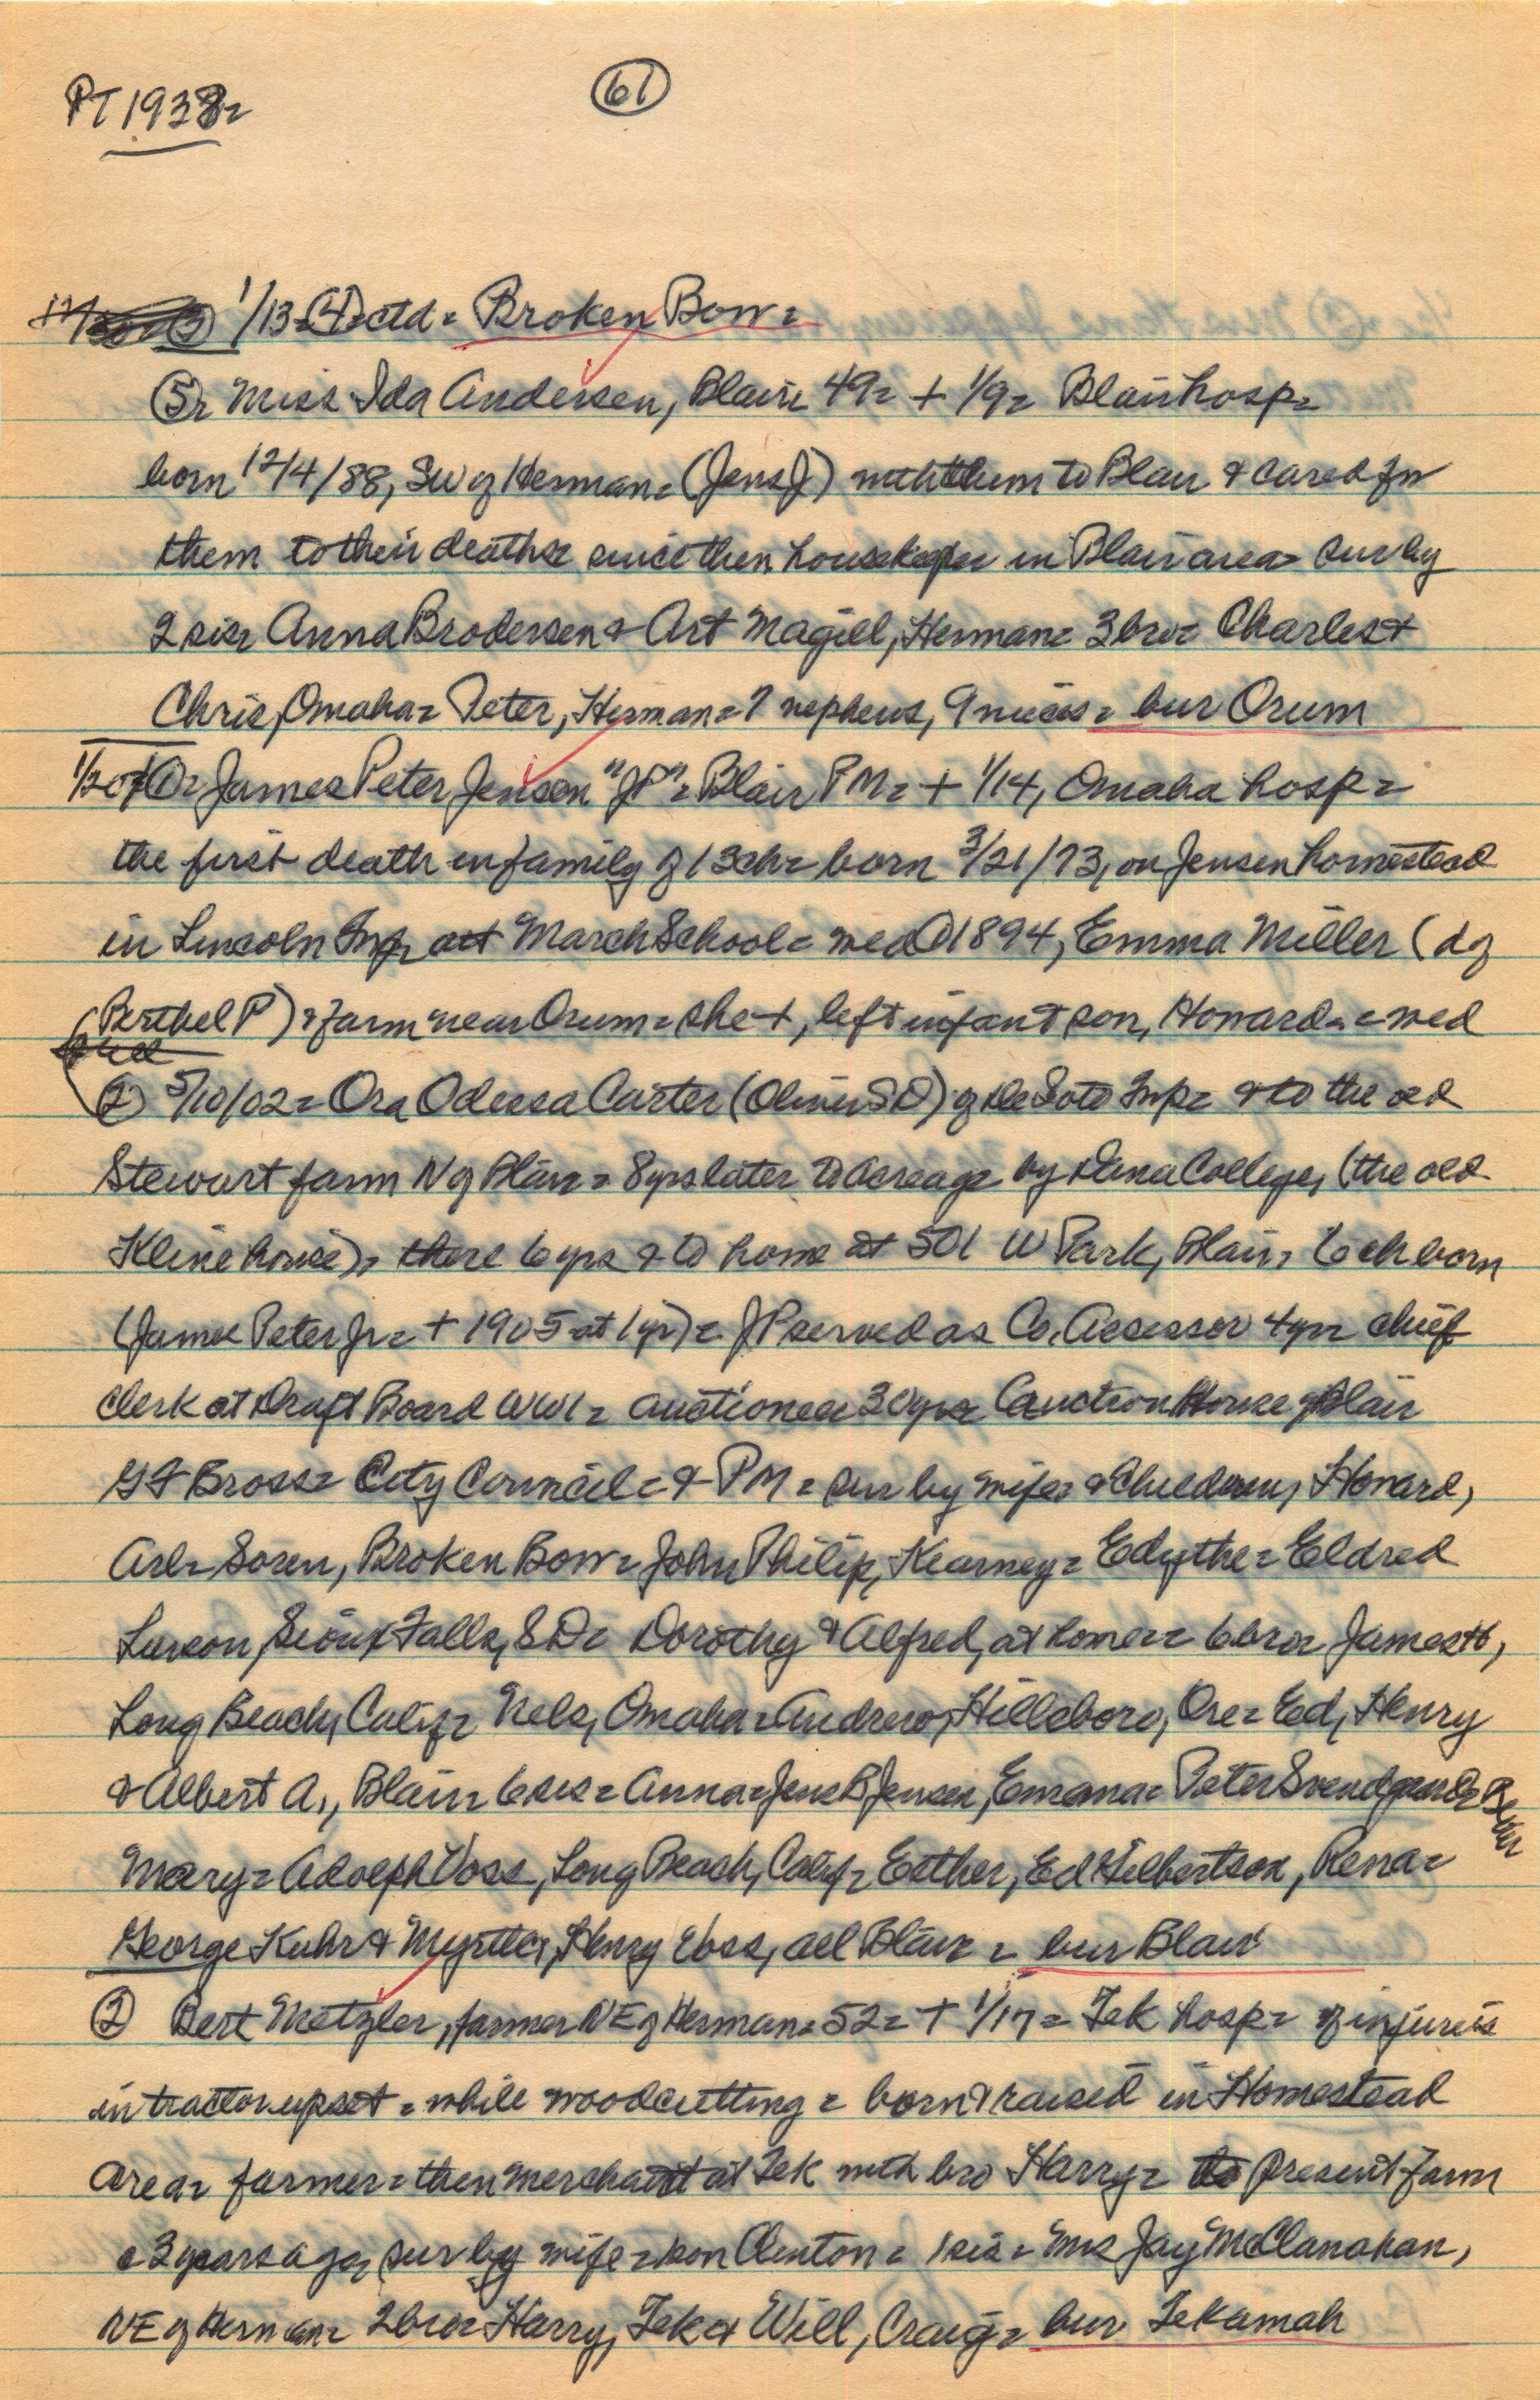 PT 1938=
61
1/13=④=ctd= Broken Bow=
⑤= Miss Ida Andersen, Blair= 49= + 1/9= Blair hosp=
born 12/4/88, SW of Herman= (Jens J) with them to Blair & cared for
them to their deaths= since then housekeeper in Blair area= sur by
2 sis= Anna Brodersen & Art Magill, Herman= 3 bro= Charles &
Chris, Omaha= Peter, Herman= 7 nephews, 9 nieces= bur Orum
1/20= ①= James Peter Jensen "JP"= Blair PM= + 1/14, Omaha hosp=
the first death in family of 13 ch= born 3/21/73, on Jensen homestead
in Lincoln Twp= att March School= wed ① 1894, Emma Miller (d of
(Berthel P) & farm near Orum= she +, left infant son, Howard= wed
② 5/10/02= Ora Odessa Carter (Oliver S D) of DeSoto Twp= & to the old
Stewart farm N of Blair= 8 yrs later to acreage by Dana College, (the old
Kline house)= there 6 yrs & to home at 501 W Park, Blair= 6 ch born
(James Peter Jr= + 1905 at 1 yr)= JP served as Co. Assessor 4 yr= chief
clerk at Draft Board WW1= auctioneer 30 yrs= Auction House of Blair
City Council= & PM= sur by wife= & Children, Howard,
Arl= Soren, Broken Bow= John Philip, Kearney= Edythe= Eldred
Larson, Sioux Falls, SD= Dorothy & Alfred, at home= 6 bro= James H,
Long Beach, Calif= Nels, Omaha= Andrew, Hillsboro, Ore= Ed, Henry
& Albert A., Blair= 6 sis= Anna= Jens B Jensen, Emma= Peter Svendgaard= Blair
Mary= Adolph Voss, Long Beach, Calif= Esther, Ed Gilbertson, Rena=
George Kuhr & Myrtle, Henry Voss, all Blair= bur Blair
② Bert Metzler, farmer NE of Herman= 52= + 1/17= Tek hosp= of injuries
in tractor upset= while woodcutting= born & raised in Homestead
area= farmer= then merchant at Tek with bro Harry= to present farm
3 years ago, sur by wife= son Clinton= 1 sis= Mrs Jay McClanahan,
NE of Herman= 2 bro= Harry, Tek & Will, Craig= bur Tekamah